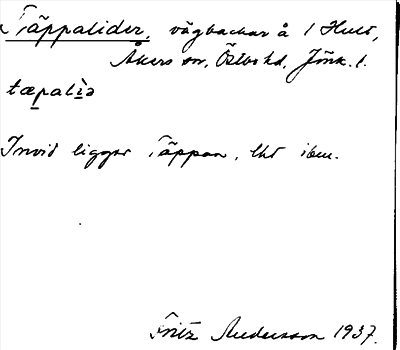 Täppalider, vägbackar å 1 Hult,
Åkers sn, Östbo hd, Jönk. l.
tæpalìə
Invid ligger Täppan, lht ibm.
Fritz Andersson 1937.